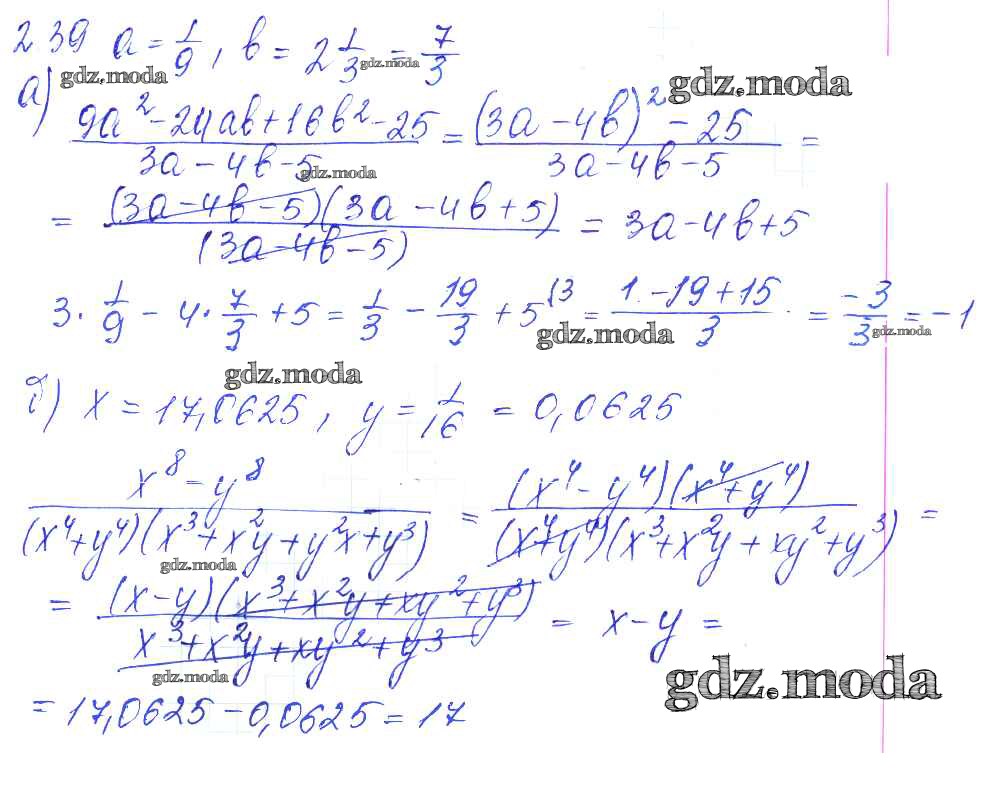 239 a = 1/9, b = 2 1/3 = 7/3
gdz.moda
gdz.moda
gdz.moda
а) (9a² - 24ab + 16b² - 25)/(3a - 4b - 5) = ((3a - 4b)² - 25)/(3a - 4b - 5) =
gdz.moda
= ((3a - 4b - 5)(3a - 4b + 5))/((3a - 4b - 5)) = 3a - 4b + 5
3 · 1/9 - 4 · 7/3 + 5 = 1/3 - 19/3 + 5 (3 = (1 - 19 + 15)/3 = -3/3 = -1
gdz.moda
gdz.moda
gdz.moda
б) x = 17,0625, y = 1/16 = 0,0625
(x⁸ - y⁸)/((x⁴ + y⁴)(x³ + x²y + y²x + y³)) = ((x⁴ - y⁴)(x⁴ + y⁴))/((x⁴ + y⁴)(x³ + x²y + xy² + y³)) =
gdz.moda
= ((x - y)(x³ + x²y + xy² + y³))/(x³ + x²y + xy² + y³) = x - y =
gdz.moda
gdz.moda
= 17,0625 - 0,0625 = 17